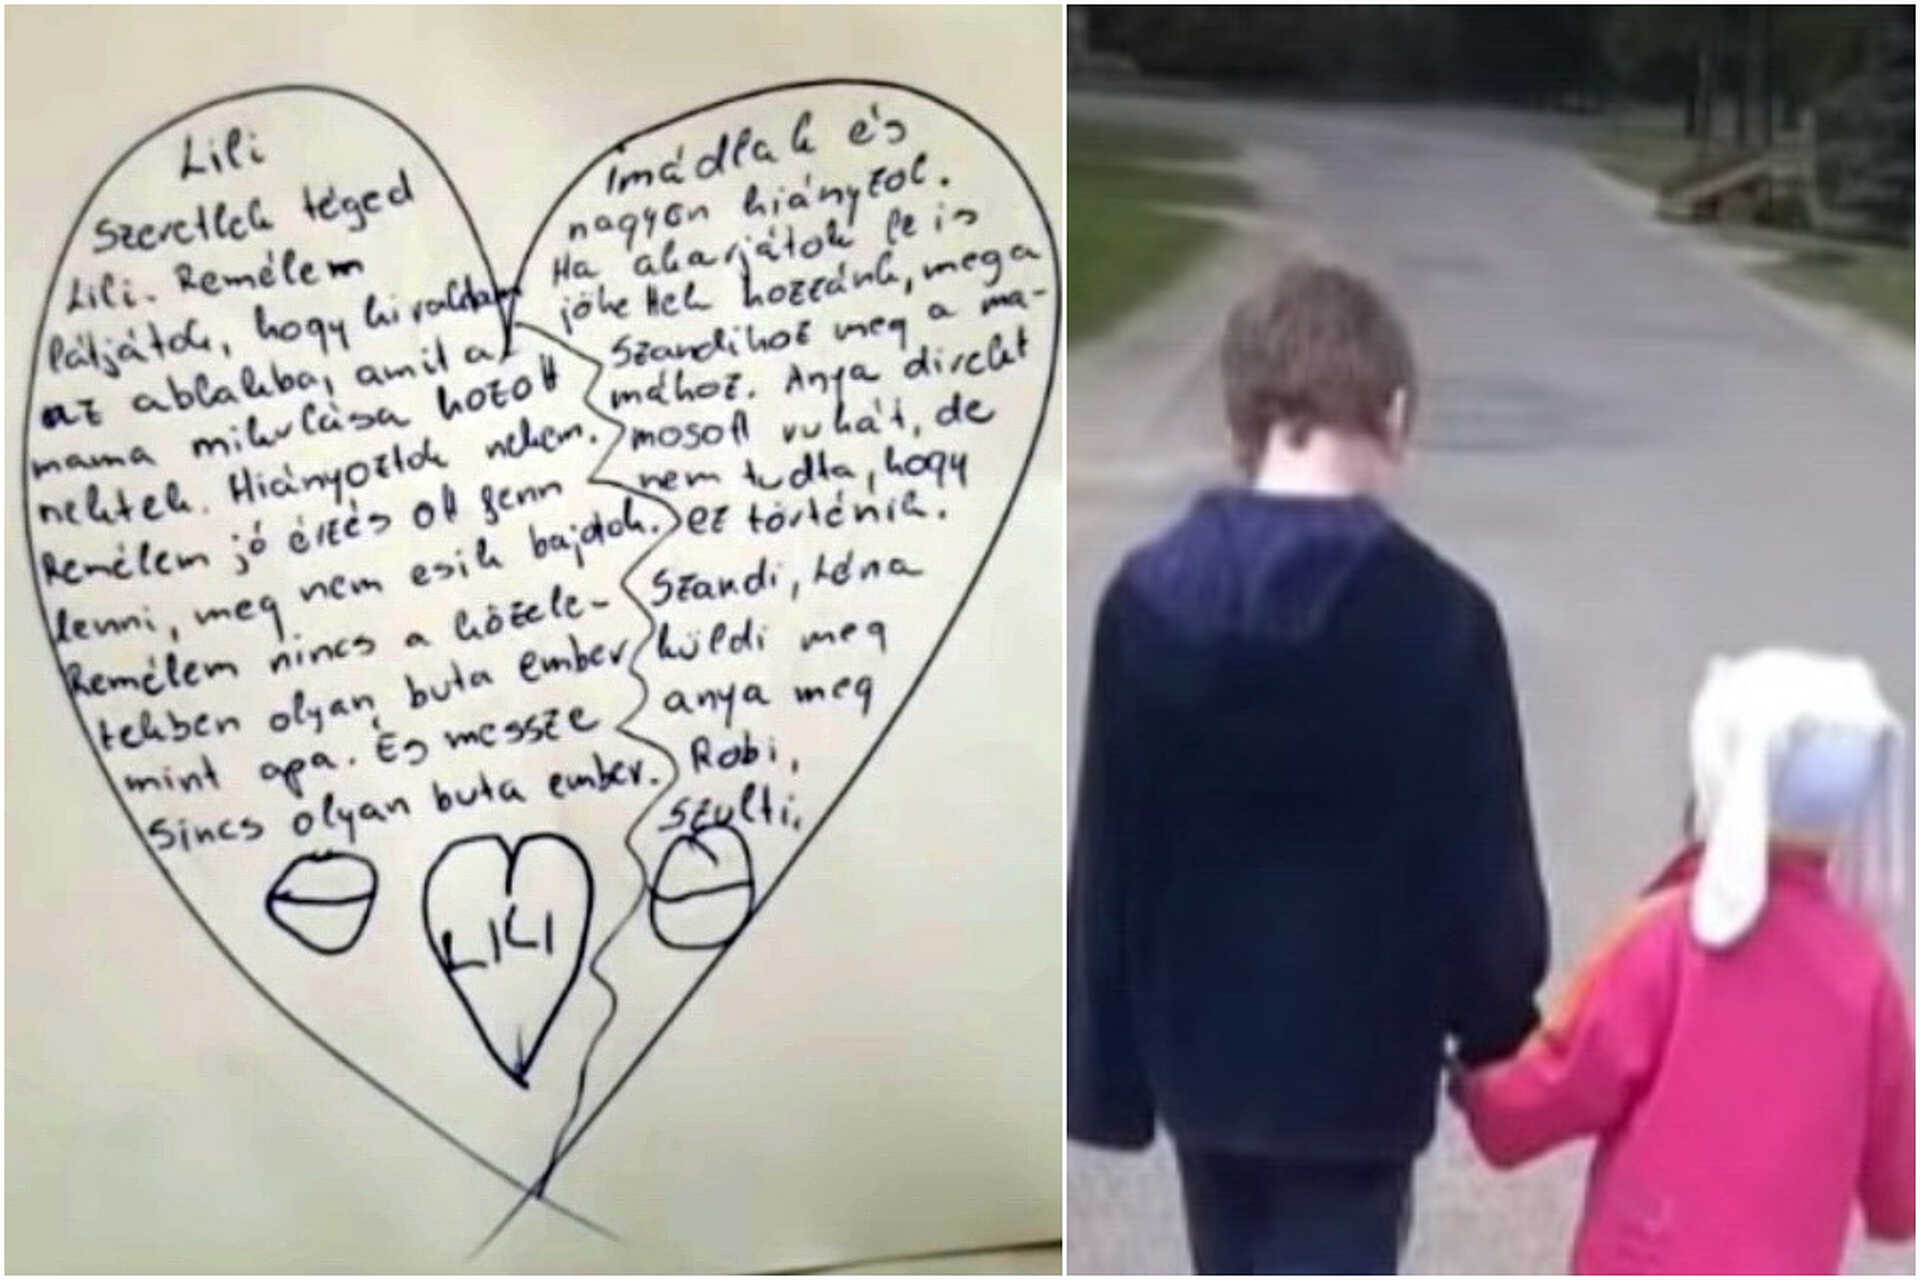 Lili
Szeretlek téged
Lili. Remélem
látjátok, hogy kiraktam
az ablakba, amit az
mama mikulása hozott
nektek. Hiányoztok nekem.
Remélem jó érzés ott fenn
lenni, meg nem esik bajotok.
Remélem nincs a közele-
tekben olyan buta ember
mint apa. És messze
sincs olyan buta ember.
LILI
Imádlak és
nagyon hiányzol.
Ha akarjátok le is
jöhettek hozzánk, meg a
Szandihoz meg a ma-
mához. Anya direkt
mosott ruhát, de
nem tudta, hogy
ez történik.
Szandi, Léna
küldi meg
anya meg
Robi,
Szulti.